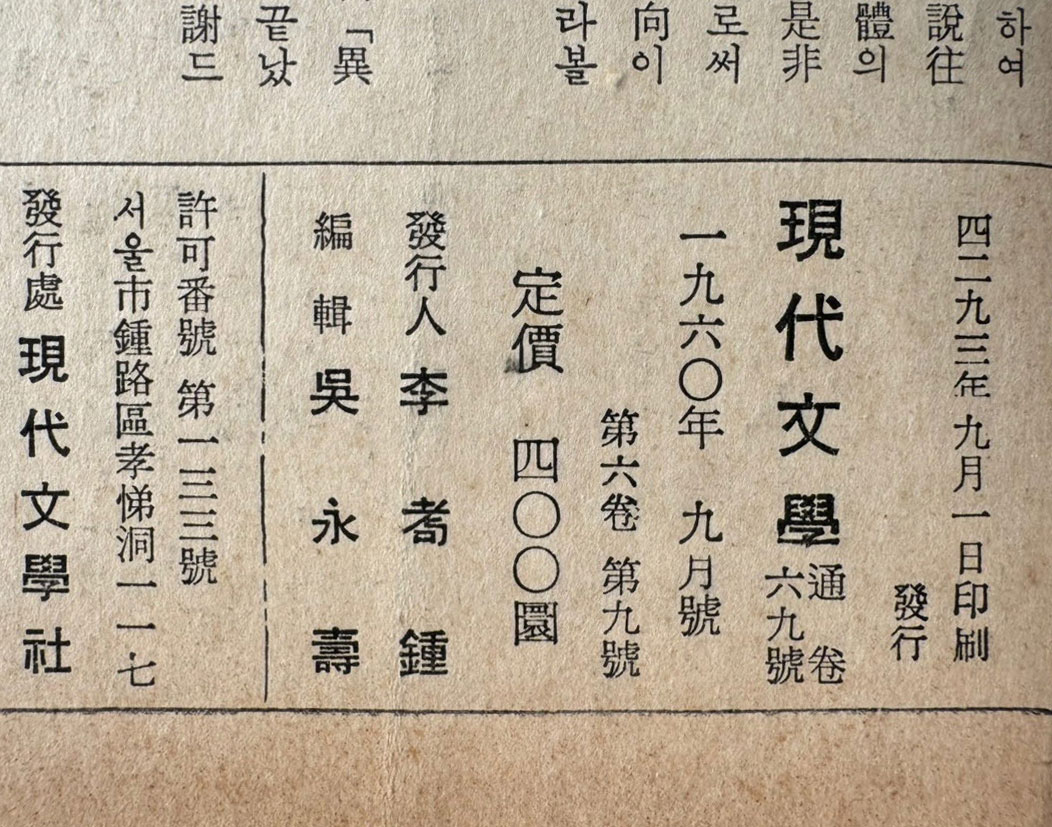 하여
說往
體의
是非
로써
向이
라볼
「異
끝났
謝드
四二九三年 九月一日印刷
發行
現代文學 通卷六九號
一九六〇年 九月號
第六卷 第九號
定價 四〇〇圜
發行人 李耈鍾
編輯 吳永壽
許可番號 第一三三號
서울市鍾路區孝悌洞一一七
發行處 現代文學社